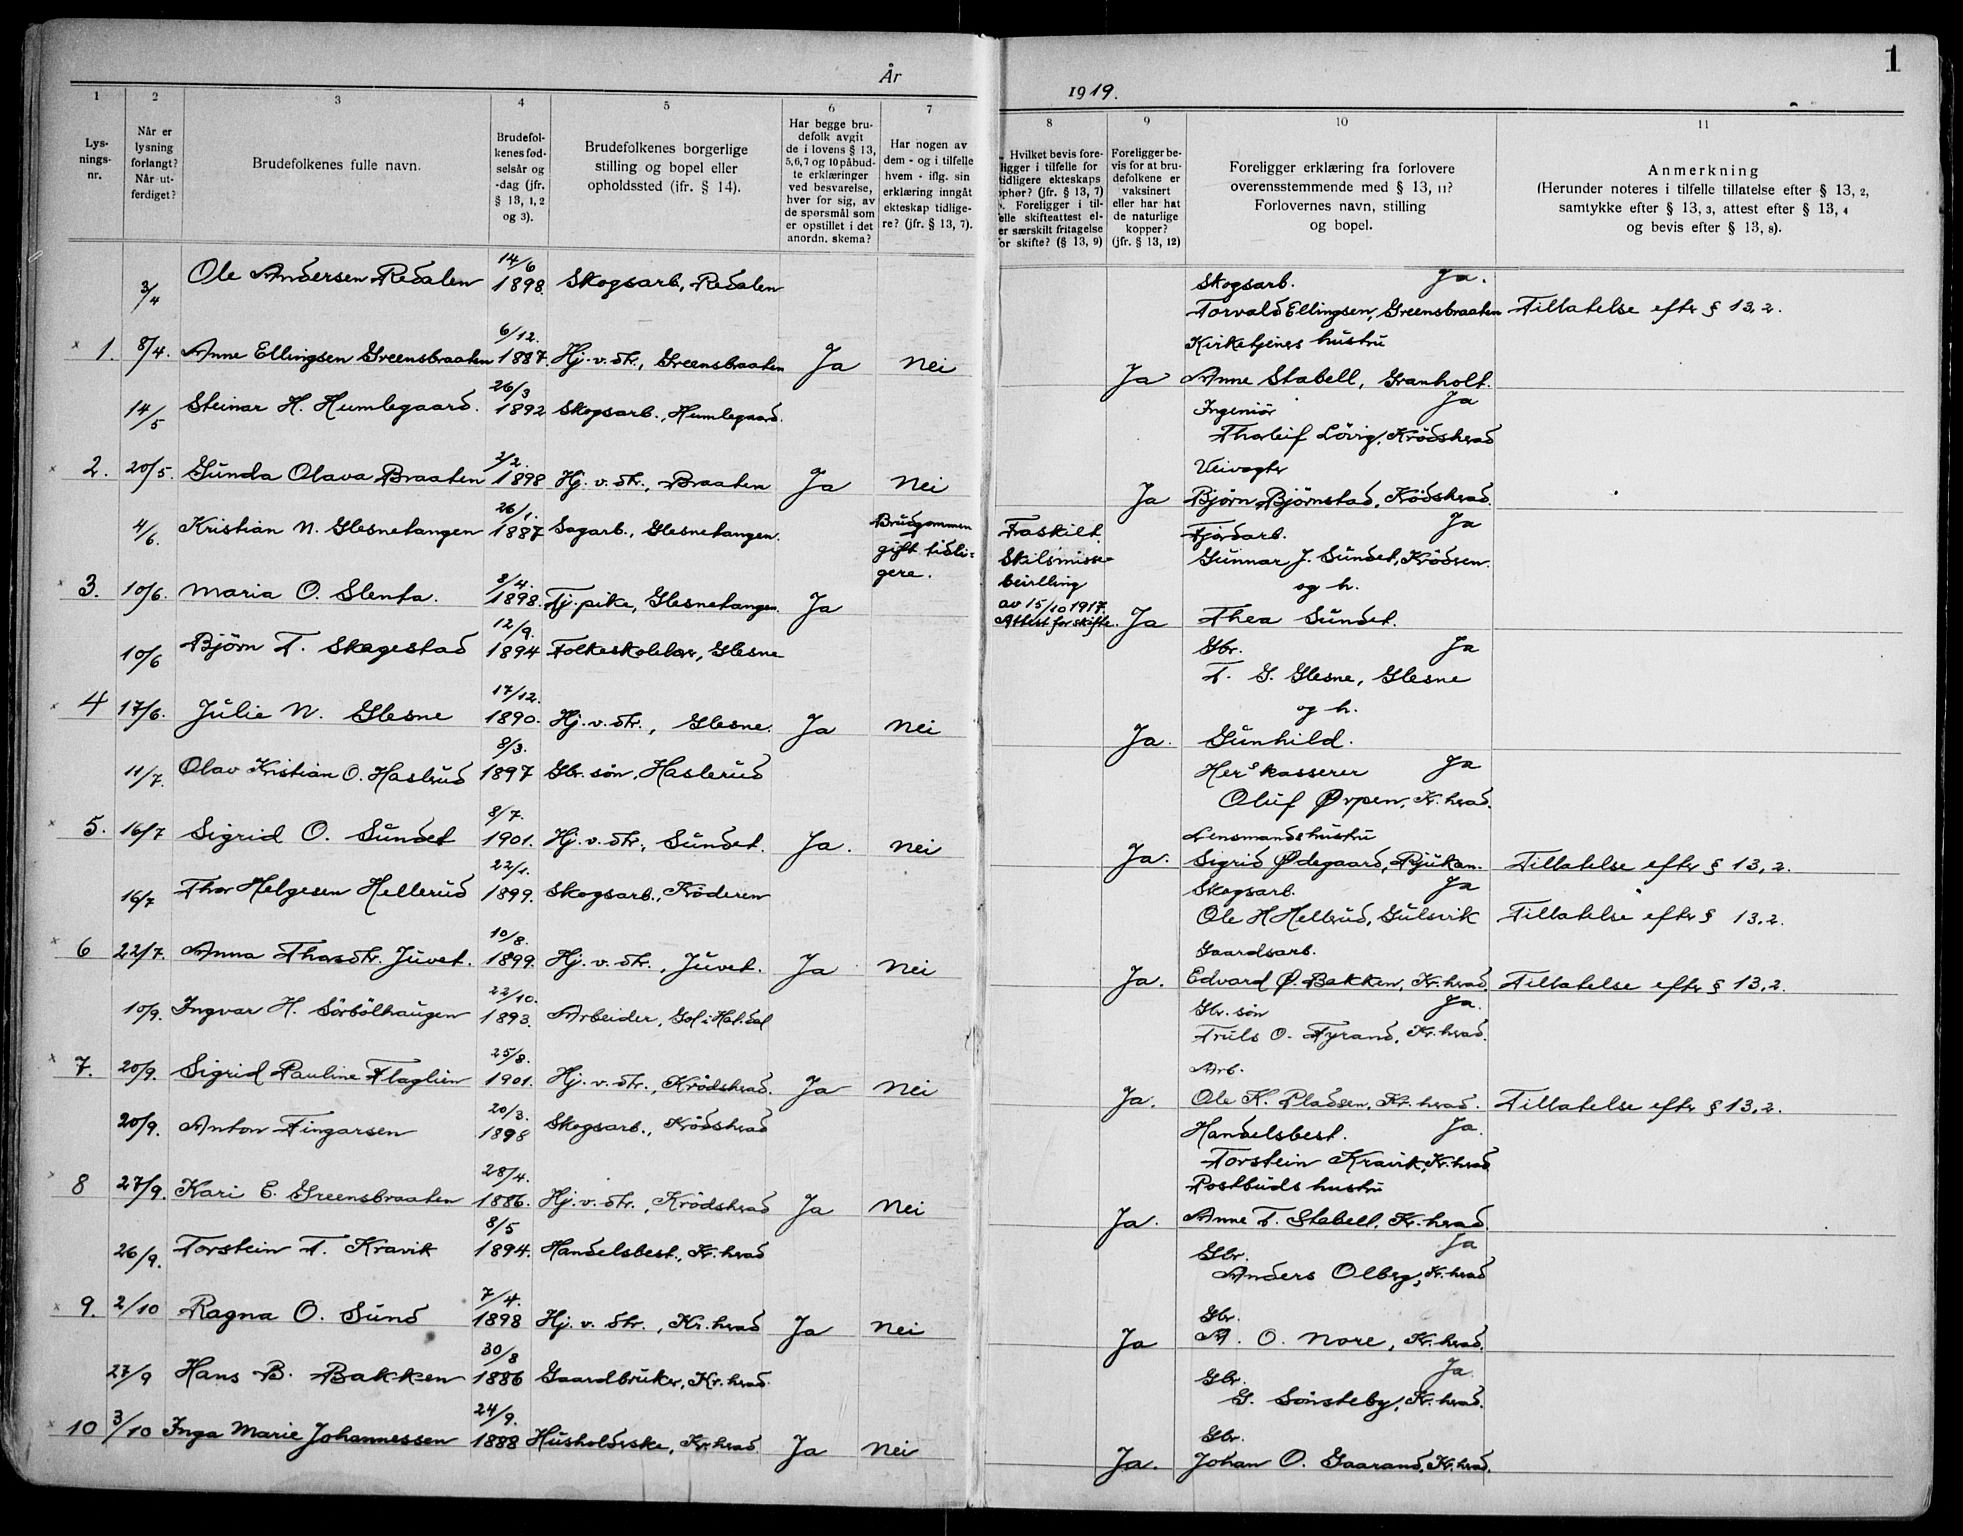 År
1919.
1
1 2 3 4 5 6 7 8 9 10 11
Lys-
nings-
nr.
Når er
lysning
forlangt?
Når ut-
ferdiget?
Brudefolkenes fulle navn.
Brudefol-
kenes fød-
selsår og
-dag (jfr.
§ 13, 1, 2
og 3).
Brudefolkenes borgerlige
stilling og bopel eller
opholdssted (ifr. § 14).
Har begge bru-
defolk avgit
de i lovens § 13,
5,6,7 og 10 påbud-
te erklæringer
ved besvarelse,
hver for sig, av
de spørsmål som
er opstillet i det
anordn. skema?
Har nogen av
dem - og i tilfelle
hvem - iflg. sin
erklæring inngåt
ekteskap tidlige-
re? (jfr. § 13, 7).
Hvilket bevis fore-
ligger i tilfelle for
tidligere ekteskaps
ophør? (jfr. § 13, 7)
Foreligger i til-
felle skifteattest el-
er særskilt fritagelse
for skifte? (§ 13, 9)
Foreligger be-
vis for at bru-
defolkene er
vaksinert
eller har hat
de naturlige
kopper?
(jfr. § 13, 12)
Foreligger erklæring fra forlovere
overensstemmende med § 13, 11?
Forlovernes navn, stilling
og bopel.
Anmerkning
(Herunder noteres i tilfelle tillatelse efter § 13, 2,
samtykke efter § 13, 3, attest efter § 13, 4
og bevis efter § 13, 8).
3/4 Ole Andersen Redalen 14/6 1898. Skogsarb., Redalen
Skogsarb. Ja.
Torvald Ellingsen, Greensbraaten Tillatelse efter § 13, 2.
Kirketjenes hustru
x 1. 8/4. Anne Ellingsen Greensbraaten 6/12. 1887. Hj. v. dtr., Greensbraaten Ja Nei Ja Anne Stabell, Granholt.
14/5 Steinar H. Humlegaard. 26/3 1892 Skogsarb., Humlegaard.
Ingeniör Ja
Thorleif Lövig, Krödsherad
Veivogter
x 2. 20/5. Gunda Olava Braaten 2/2. 1898 Hj. v. dtr., Braaten Ja Nei Ja Björn Björnstad, Krödsherad.
4/6. Kristian N. Glesnetangen 26/1. 1887 Sagarb., Glesnetangen. Brudgommen
gift tidli-
gere.
Fraskilt.
Skilsmisse-
bevilling
av 15/10 1917.
Attest for skifte.
Fjordarb. Ja
Gunnar J. Sundet, Krödsen.
og h.
x 3. 10/6. Maria O. Slenta. 8/4. 1898. Tj. pike, Glesnetangen. Ja Ja Thea Sundet.
10/6 Björn T. Skagestad 12/9. 1894 Folkeskolelær, Glesne
Gbr. Ja
T. G. Glesne, Glesne
og h.
4 17/6. Julie N. Glesne 17/12. 1890. Hj. v. dtr., Glesne. Ja Nei Ja. Gunhild.
11/7. Olav Kristian O. Haslerud 8/3. 1897 Gbr. sön, Haslerud
Herskasserer Ja
Oluf Ørpen, Kr. herad.
Lensmands hustru
x 5. 16/7 Sigrid O. Sundet 8/7. 1901. Hj. v. dtr., Sundet. Ja. Nei Ja. Sigrid Ødegaard, Rjukan. Tillatelse efter § 13, 2.
16/7 Thor Helgesen Hellerud 22/1. 1899. Skogsarb., Kröderen
Skogsarb. Ja
Ole H Hellerud, Gulsvik Tillatelse efter § 13, 2.
Gaardsarb.
x 6 22/7. Anna Thorsdtr. Juvet. 10/8. 1899. Hj. v. dtr., Juvet. Ja Nei Ja. Edvard Ø. Bakken, Kr. herad. Tillatelse efter § 13, 2.
10/9. Ingvar H. Sörbölhaugen 22/10. 1893. Arbeider, Gol i Hal.dal
Gbr. sön Ja.
Truls O. Fyrand, Kr. herad.
Arb.
x 7. 20/9. Sigrid Pauline Flaglien 25/8. 1901. Hj. v. dtr., Krödsherad. Ja Nei Ja. Ole K. Pladsen, Kr. herad. Tillatelse efter § 13, 2.
20/9. Anton Fingarsen 20/3. 1898 Skogsarb., Krödsherad
Handelsbest. Ja.
Torstein Kravik, Kr. herad
Postbuds hustru
x 8 27/9. Kari E. Greensbraaten 28/4. 1886. Hj. v. dtr., Krödsherad Ja Nei Ja. Anne T. Stabell, Kr. herad.
26/9. Torstein T. Kravik 8/5 1894. Handelsbest., Kr. herad
Gbr. Ja
Anders Olberg, Kr. herad
Gbr.
x 9. 2/10 Ragna O. Sund 7/4. 1898 Hj. v. dtr., Kr. herad Ja Nei Ja A. O. Nore, Kr. herad.
27/9 Hans B. Bakken 30/8 1886 Gaardbruker, Kr. herad.
Gbr. Ja.
G. Sønsteby, Kr. herad.
Gbr.
x 10 3/10 Inga Marie Johannessen 24/9. 1888 Husholderske, Kr. herad. Ja Nei Ja. Johan O. Gaarand, Kr. herad.